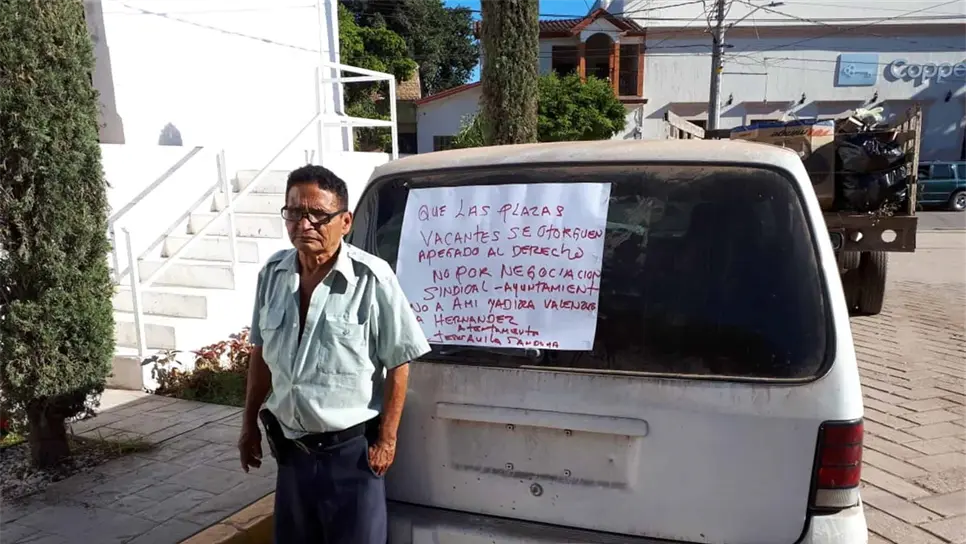 QUE LAS PLAZAS
VACANTES SE OTORGUEN
APEGADO AL DERECHO
NO POR NEGOCIACION
SINDICAL - AYUNTAMIENT
NO A AMI YADIRA VALENZUE
LA HERNANDEZ
ATENTAMENTE
AVILA SANDOVA
Coppe